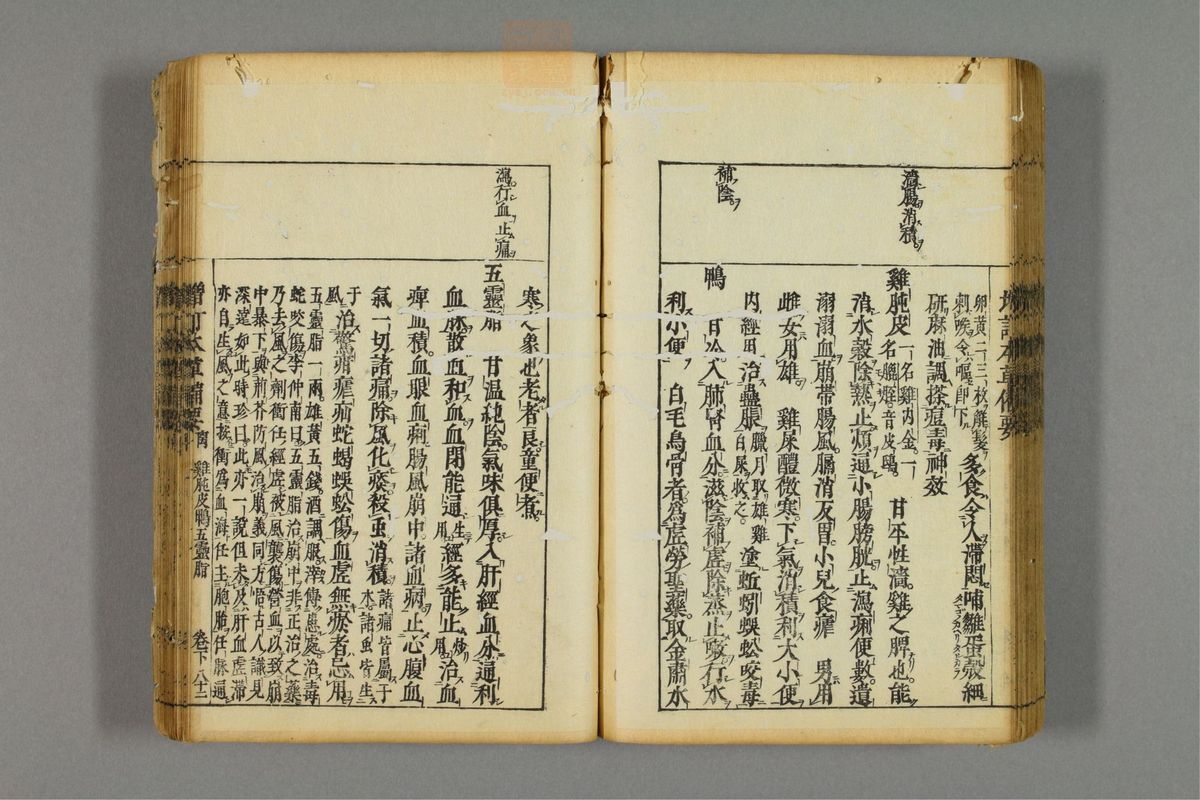 增訂本草備要
卵黃二三枚解髮
剌喉令嘔即下
多食令人滯悶哺雛蛋殼細
研麻油調搽痘毒神效
澀腸消積
雞肫皮一名雞內金一
名膍胵音皮鴟
甘平性濇雞之脾也能
消水穀除熱止煩通小腸膀胱止瀉痢便數遺
溺溺血崩帶腸風膈消反胃小兒食瘧 男用
雌女用雄 雞屎醴微寒下氣消積利大小便
內經用治蠱脹
臘月取雄雞
白屎收之
塗蚯蚓蜈蚣咬毒
補陰
鴨 甘冷入肺腎血分滋陰補虛除蒸止嗽行水
利小便 白毛烏骨者為虛勞聖藥取金肅水
寒之象也老者良童便煮
瀉行血止痛
五靈脂 甘溫純陰氣味俱厚入肝經血分通利
血脉散血和血血閉能通
生用
經多能止
炒用
治血
痺血積血眼血痢腸風崩中諸血病止心腹血
氣一切諸痛除風化痰殺蟲消積
諸痛皆屬于
木諸虫皆生
于風
治驚癇瘧疝蛇蝎蜈蚣傷血虛無瘀者忌用
五靈脂一兩雄黃五錢酒調服滓傅患處治毒
蛇咬傷李仲南曰五靈脂治崩中非正治之藥
乃去風之劑衝任經虛被風襲傷營血以致崩
中暴下與荊芥防風治崩義同方悟古人識見
深遠如此時珍曰此亦一說但未及肝血虛滯
亦自生風之意按衝為血海任主胞胎任脈通
增訂本草備要
雞肫皮鴨五靈脂
卷下
八十二